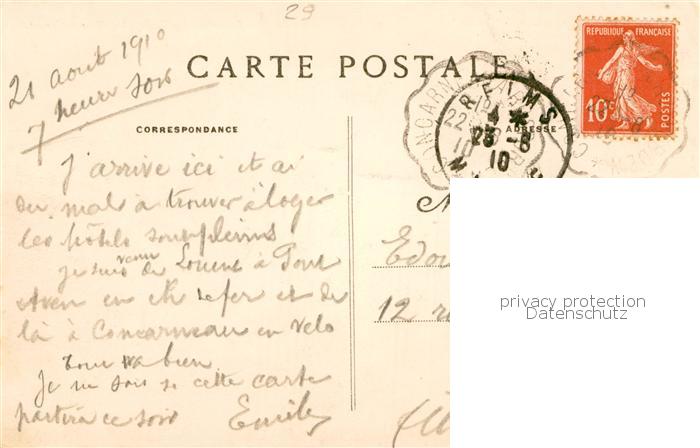 29
21 aout 1910
7 heure soir
CARTE POSTALE
RÉPUBLIQUE FRANÇAISE
10c
POSTES
CORRESPONDANCE
ADRESSE
REIMS
4
23-8
10
CONCARNEAU
22
10
J'arrive ici et ai
du mal à trouver à loger
les hôtels sont pleins
je suis venu de à Pont
Aven en ch de fer et de
là à Concarneau en velo
Tout va bien
Je ne sais si cette carte
partira ce soir Emile
M
Edou
12 r
privacy protection
Datenschutz